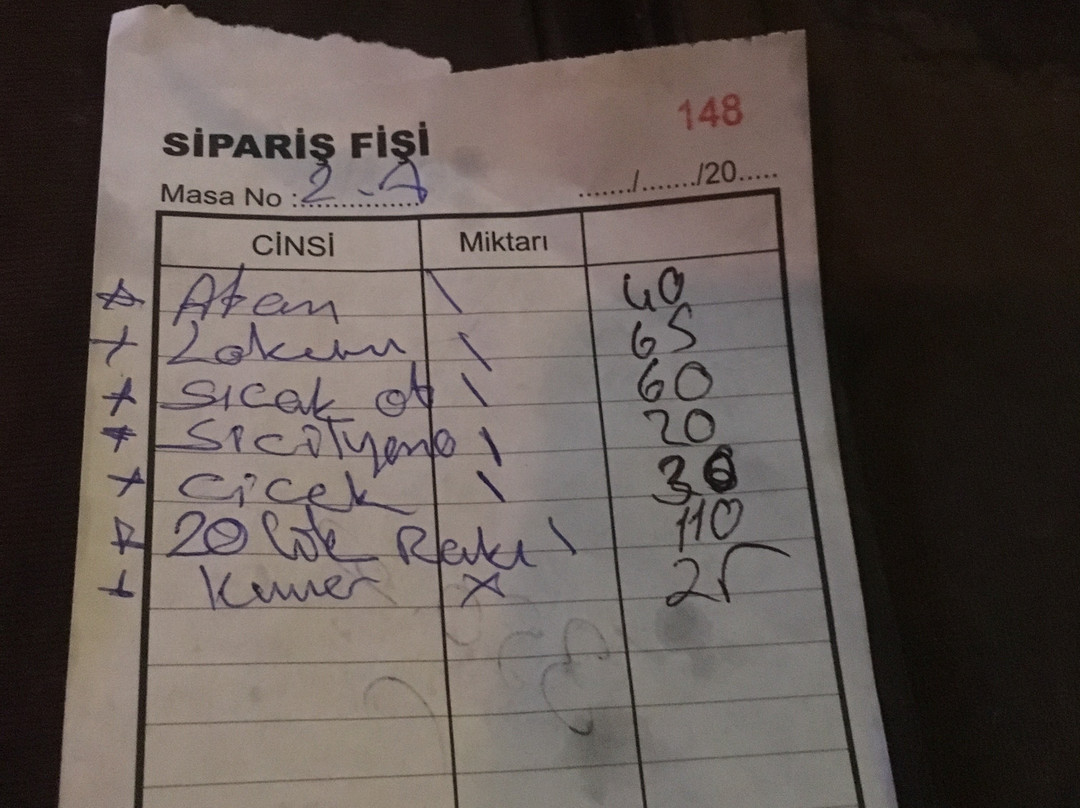 148
SİPARİŞ FİŞİ
Masa No : 2-A ......./......./20.....
CİNSİ Miktarı
Atom \ 40
Lokum \ 65
Sıcak ot \ 60
Sicilyano \ 20
Çiçek \ 30
20 lik Rakı \ 110
X 25